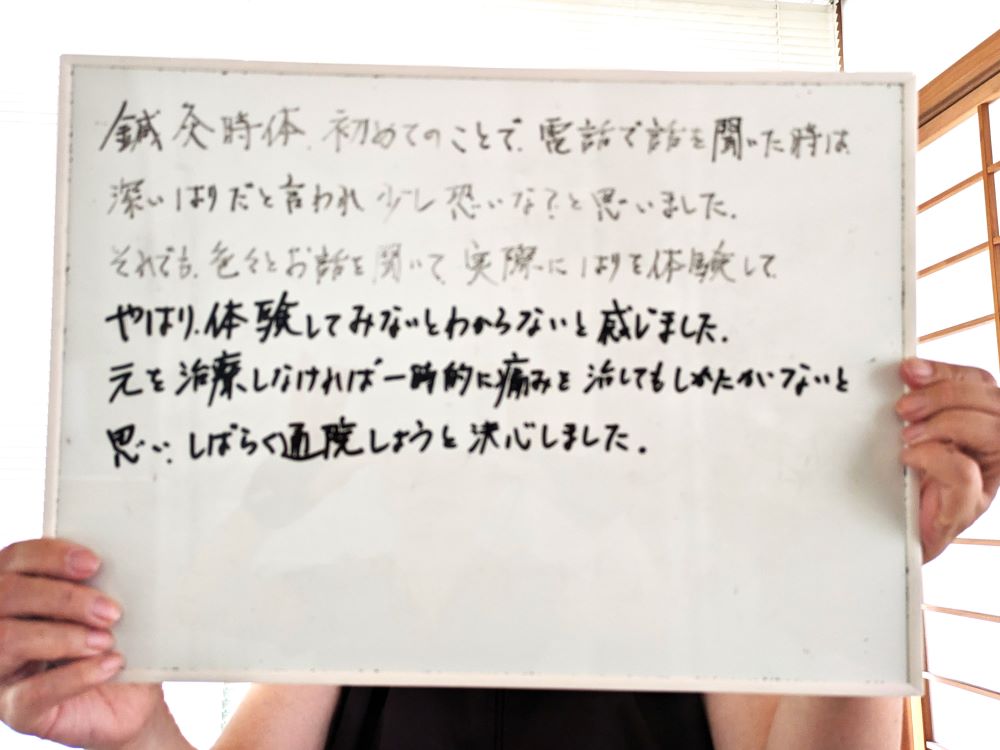 鍼灸時体、初めてのことで、電話で話を聞いた時は
深いはりだと言われ少し恐いな?と思いました。
それでも、色々とお話を聞いて、実際にはりを体験して、
やはり、体験してみないとわからないと感じました。
元を治療しなければ一時的に痛みを治してもしかたがないと
思い、しばらく通院しようと決心しました。